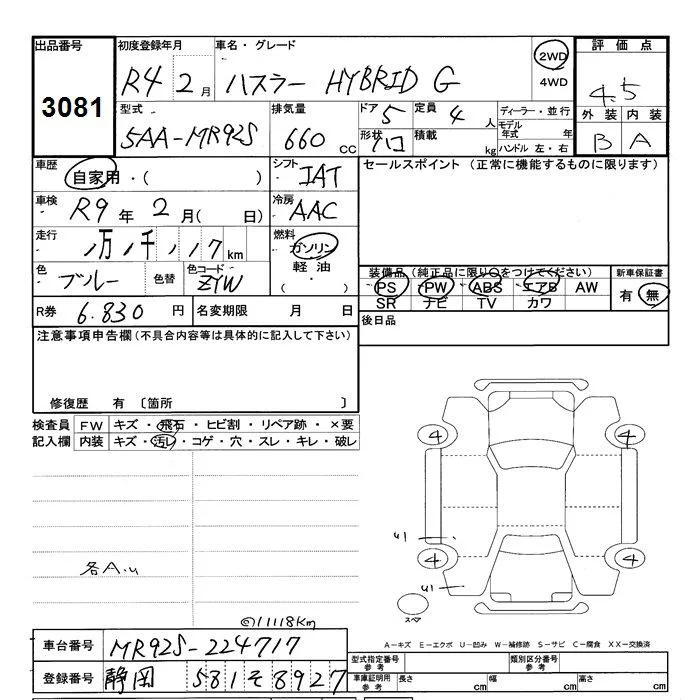 出品番号 初度登録年月 車名・グレード 評価点
3081 R4 2月 ハスラー HYBRID G 2WD 4WD 4.5
型式 排気量 ドア 定員 ディーラー・並行 外装 内装
5AA-MR92S 660cc 5 4人 モデル年式 年 B A
形状 積載 kg ハンドル 左・右
車歴 シフト セールスポイント (正常に機能するものに限ります)
自家用・( ) IAT
車検 冷房
R9年 2月( 日) AAC
走行 燃料
1万1千117km ガソリン
軽油・( )
色 色替 色コード 装備品 (純正品に限り○をつけてください) 新車保証書
ブルー ZYW PS PW ABS エアB AW 有 無
SR ナビ TV カワ
R券 6.830円 名変期限 月 日 後日品
注意事項申告欄(不具合内容等は具体的に記入して下さい)
修復歴 有 〔箇所 〕
検査員 FW キズ・飛石・ヒビ割・リペア跡・×要
記入欄 内装 キズ・汚レ・コゲ・穴・スレ・キレ・破レ
4 4
各A.u
u1
4 4
u1
スペア
◎11118Km
A-キズ E-エクボ U-凹み W-補修跡 S-サビ C-腐食 XX-交換済
車台番号 MR92S-224717
型式指定番号 参考 類別区分番号 参考
登録番号 静岡 581 そ 8927
車庫証明用 参考 長さ cm 幅 cm 高さ cm